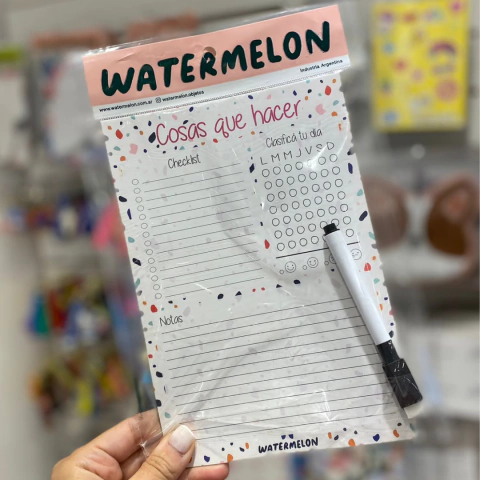 WATERMELON
www.watermelon.com.ar watermelon.objetos
Industria Argentina
Cosas que hacer
Checklist
Clasificá tu día
L M M J V S D
Notas
WATERMELON